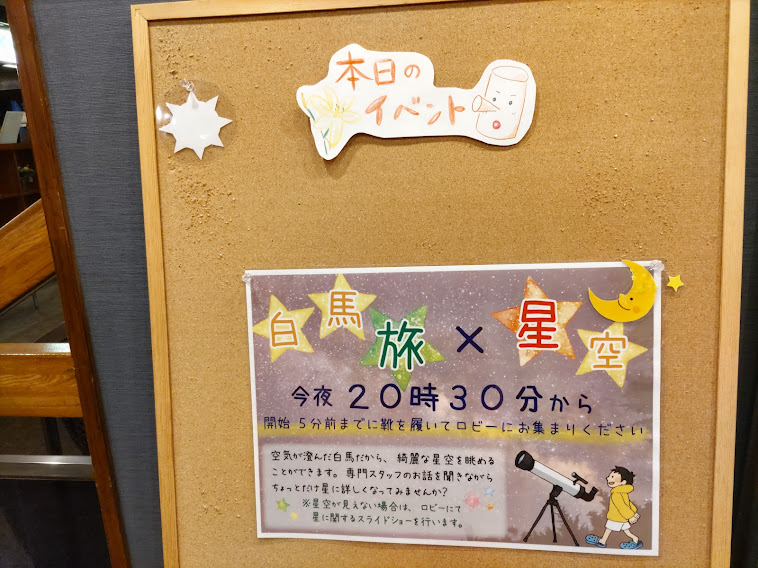 本日の
イベント
白馬旅×星空
今夜20時30分から
開始5分前までに靴を履いてロビーにお集まりください
空気が澄んだ白馬だから、綺麗な星空を眺める
ことができます。専門スタッフのお話を聞きながら
ちょっとだけ星に詳しくなってみませんか?
※星空が見えない場合は、ロビーにて
星に関するスライドショーを行います。